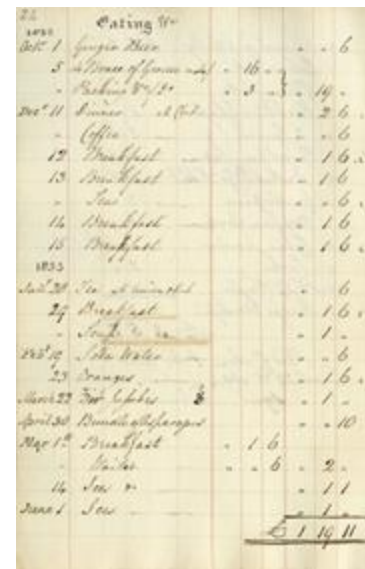 22 Eating &c
Octr 1 Ginger Beer " " 6
5 Brace of Grouse " 16 "
" Packing &c " 3 " " 19 "
Decr 11 Dinner at Club " 2 6
" Coffee " " 6
12 Breakfast " 1 6
13 Breakfast " 1 6
" Tea " " 6
14 Breakfast " 1 6
15 Breakfast " 1 6
1833
20 Tea at " 6
29 Breakfast " 1 6
" " 1 "
Feby 19 Soda Water " " 6
23 Oranges " 1 6
March 22 For " 1 "
April 30 Bundle Asparagus " " 10
May 1st Breakfast " 1 6
" Waiter " " 6 " 2 "
14 " 1 1
June 1 " 1 "
£ 1 19 11